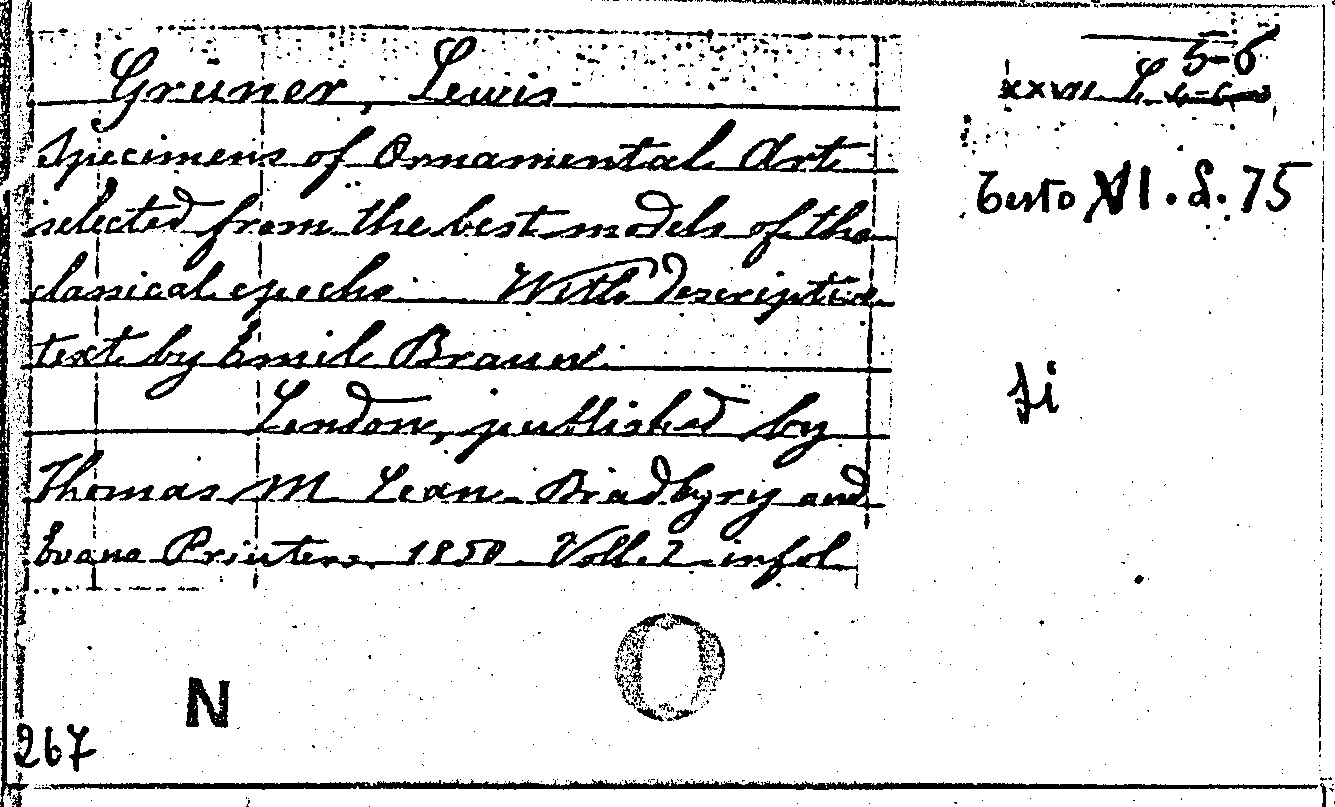 Grüner, Lewis
Specimens of Ornamental Art
selected from the best models of the
classical epochs. With descriptive
text by Emil Braun.
London, published by
Thomas M Lean. Bradbyry and
Evans Printers. 1850. Voll. 2 infol
5-6
xxvii. L. 4-6
Testo XI. S. 75
fi
N
267